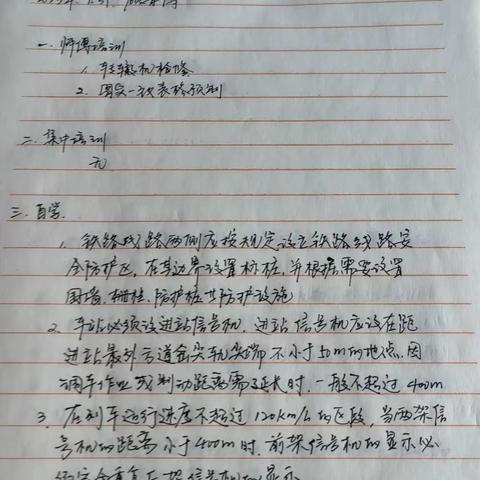 一. 师傅培训
1. 转辙机检修
2.
二. 集中培训
无
三. 自学
1. 铁路线路两侧应按规定设立铁路线路安
全防护区, 在其边界设置标桩, 并根据需要设置
围墙、栅栏、防护桩等防护设施
2. 车站必须设进站信号机. 进站信号机应设在距
进站最外方道岔尖轨尖端不小于50m的地点. 因
调车作业或制动距离需延长时. 一般不超过400m
3. 在列车运行速度不超过120km/h的区段, 当两架信
号机的距离小于400m时, 前架信号机的显示必
须完全重复后架信号机的显示